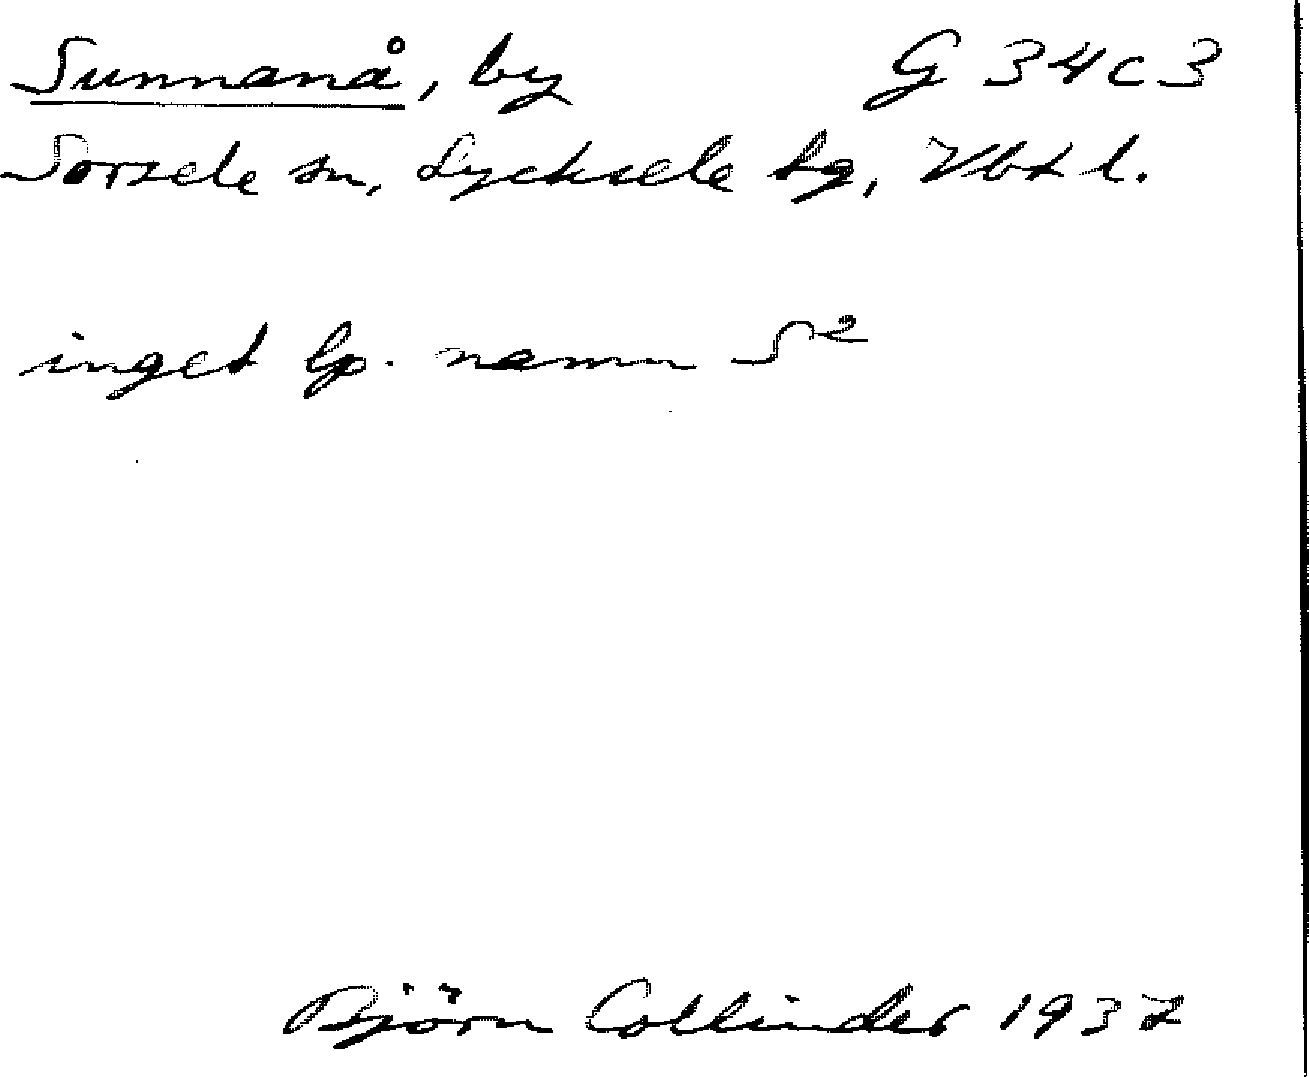 Sunnanå, by G 34 c 3
Sorsele sn, Lycksele lg, Vbt l.
inget lp. namn S²
Björn Collinder 1937